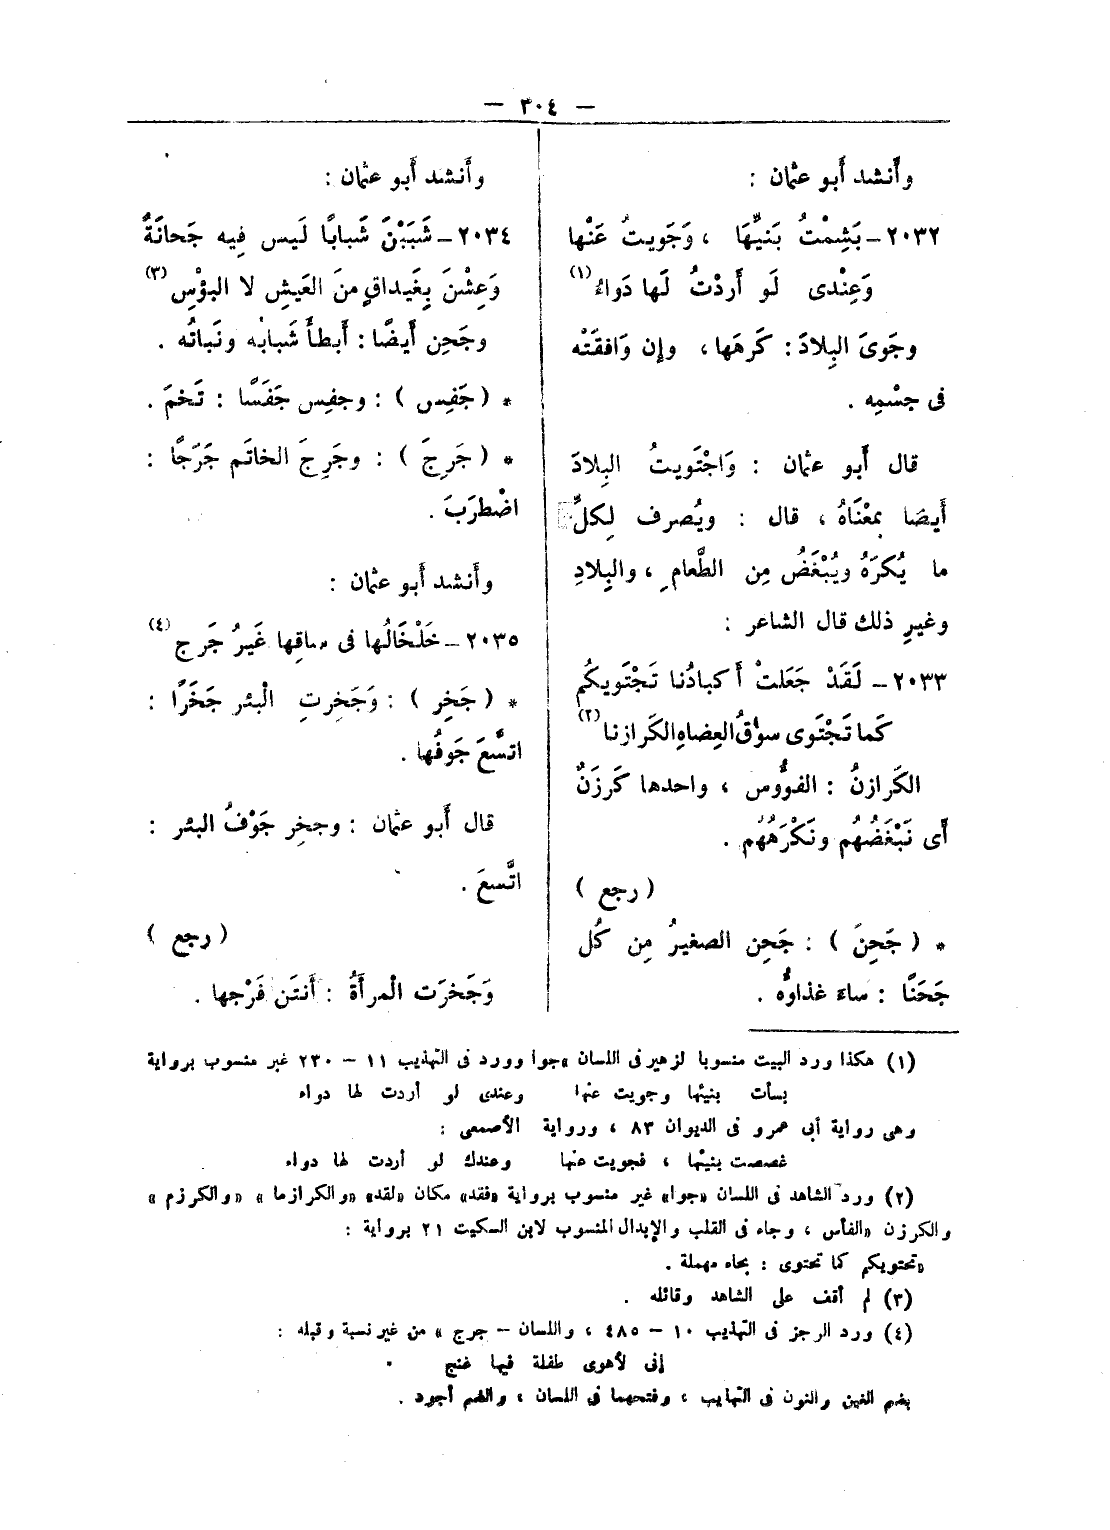 — ٣٠٤ —
وأنشد أبو عثمان :
٢٠٣٢ـ بَشِمْتُ بَنيِّهَا ، وَجَويتُ عَنْها
وَعِنْدى لَو أَردْتُ لَها دَواءُ (١)
وجَوىَ البِلادَ : كَرهَها ، وإن وَافقَتْه
فى جسْمِه .
قال أَبو عثمان : وَاجْتَويتُ البِلادَ
أَيضَا بمعْنَاهُ ، قال : ويُصرف لِكلِّ
ما يُكرَهُ ويُبْغَضُ مِن الطَّعامِ ، والبِلادِ
وغيرِ ذلك قال الشاعر :
٢٠٣٣ـ لَقَدْ جَعَلتْ أكبادُنا تَجْتَويكُم
كَما تَجْتَوى سوقُ العِضاهِ الكَرازنا (٢)
الكَرازنُ : الفوُوس ، واحدها كَرزَنٌ
أَى نَبْغَضُهُم ونَكْرَهُهُم .
( رجع )
* ( جَحِنَ ) : جَحِن الصغيرُ مِن كُل
جَحَنًا : ساءَ غذاوهُ .
وأَنشد أَبو عثمان :
٢٠٣٤ـ شَبَبْنَ شَبابًا لَيس فِيه جَحانَةٌ
وَعِشْنَ بِغَيداقٍ منَ العَيشِ لا البؤْسِ (٣)
وجَحِن أَيضًا : أَبطأَ شَبابُه ونَباتُه .
* ( جَفِس ) : وجفِس جَفَسًا : تَخمَ .
* ( جَرِجَ ) : وجَرِجَ الخاتَم جَرَجًا :
اضْطرَبَ .
وأَنشد أَبو عثمان :
٢٠٣٥ـ خَلْخَالُها فى ساقِها غَيرُ جَرجِ (٤)
* ( جَخِر ) : وَجَخِرتِ الْبئر جَخَرًا :
اتسَّعَ جَوفُها .
قال أَبو عثمان : وجخِر جَوْفُ البئر :
اتَّسعَ .
( رجع )
وَجَخرَت الْمرأَةُ : أَنتَن فَرْجها .
(١) هكذا ورد البيت منسوبا لزهير فى اللسان «جوا وورد فى التهذيب ١١ – ٢٣٠ غير منسوب برواية
بسأت بنيئها وجويت عنها وعندى لو أردت لها دواء
وهى رواية أبى عمرو فى الديوان ٨٣ ، ورواية الأصمعى :
غصصت بنيئها ، فجويت عنها وعندك لو أردت لها دواء
(٢) ورد الشاهد فى اللسان «جوا» غير منسوب برواية «فقد» مكان «لقد» «والكرازما » «والكرزم »
والكرزن «الفأس ، وجاء فى القلب والإبدال المنسوب لابن السكيت ٢١ برواية :
«تحتويكم كما تحتوى : بحاء مهملة .
(٣) لم أقف على الشاهد وقائله .
(٤) ورد الرجز فى التهذيب ١٠ – ٤٨٥ ، واللسان – جرج » من غير نسبة وقبله :
إنى لأهوى طفلة فيها غنج
بضم الغين والنون فى التهذيب ، وفتحهما فى اللسان ، والضم أجود .